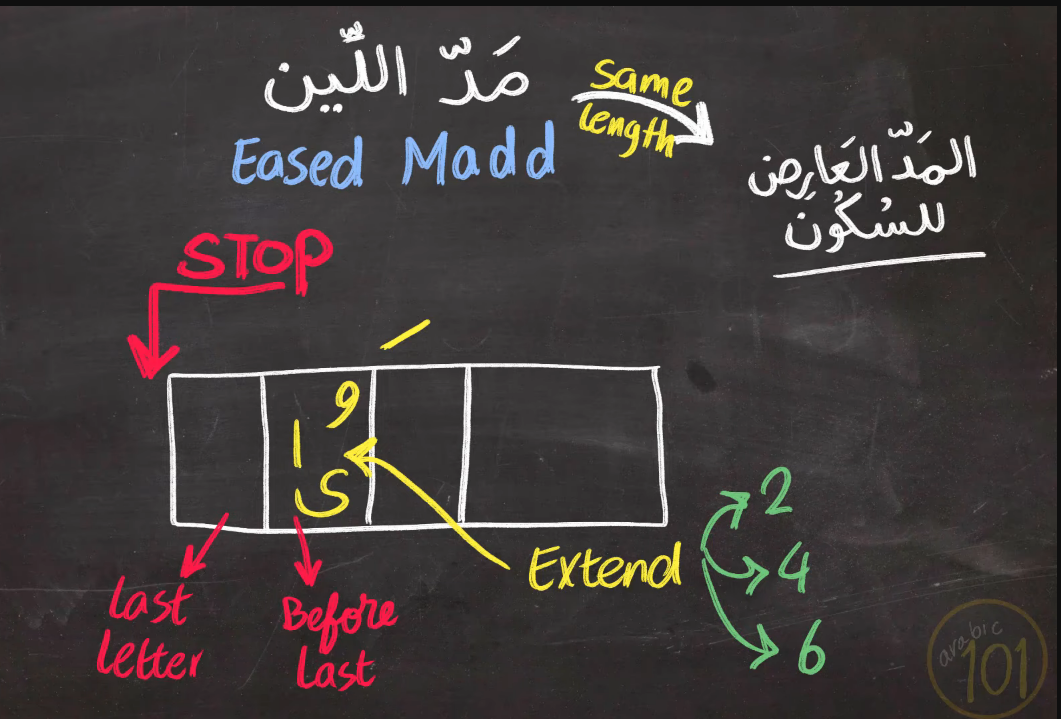 مَدّ اللِّين
Eased Madd
same
length
المَدّ العَارِض
للسُكُون
STOP
و
ا
ي
Extend
2
4
6
last
letter
Before
last
arabic
101